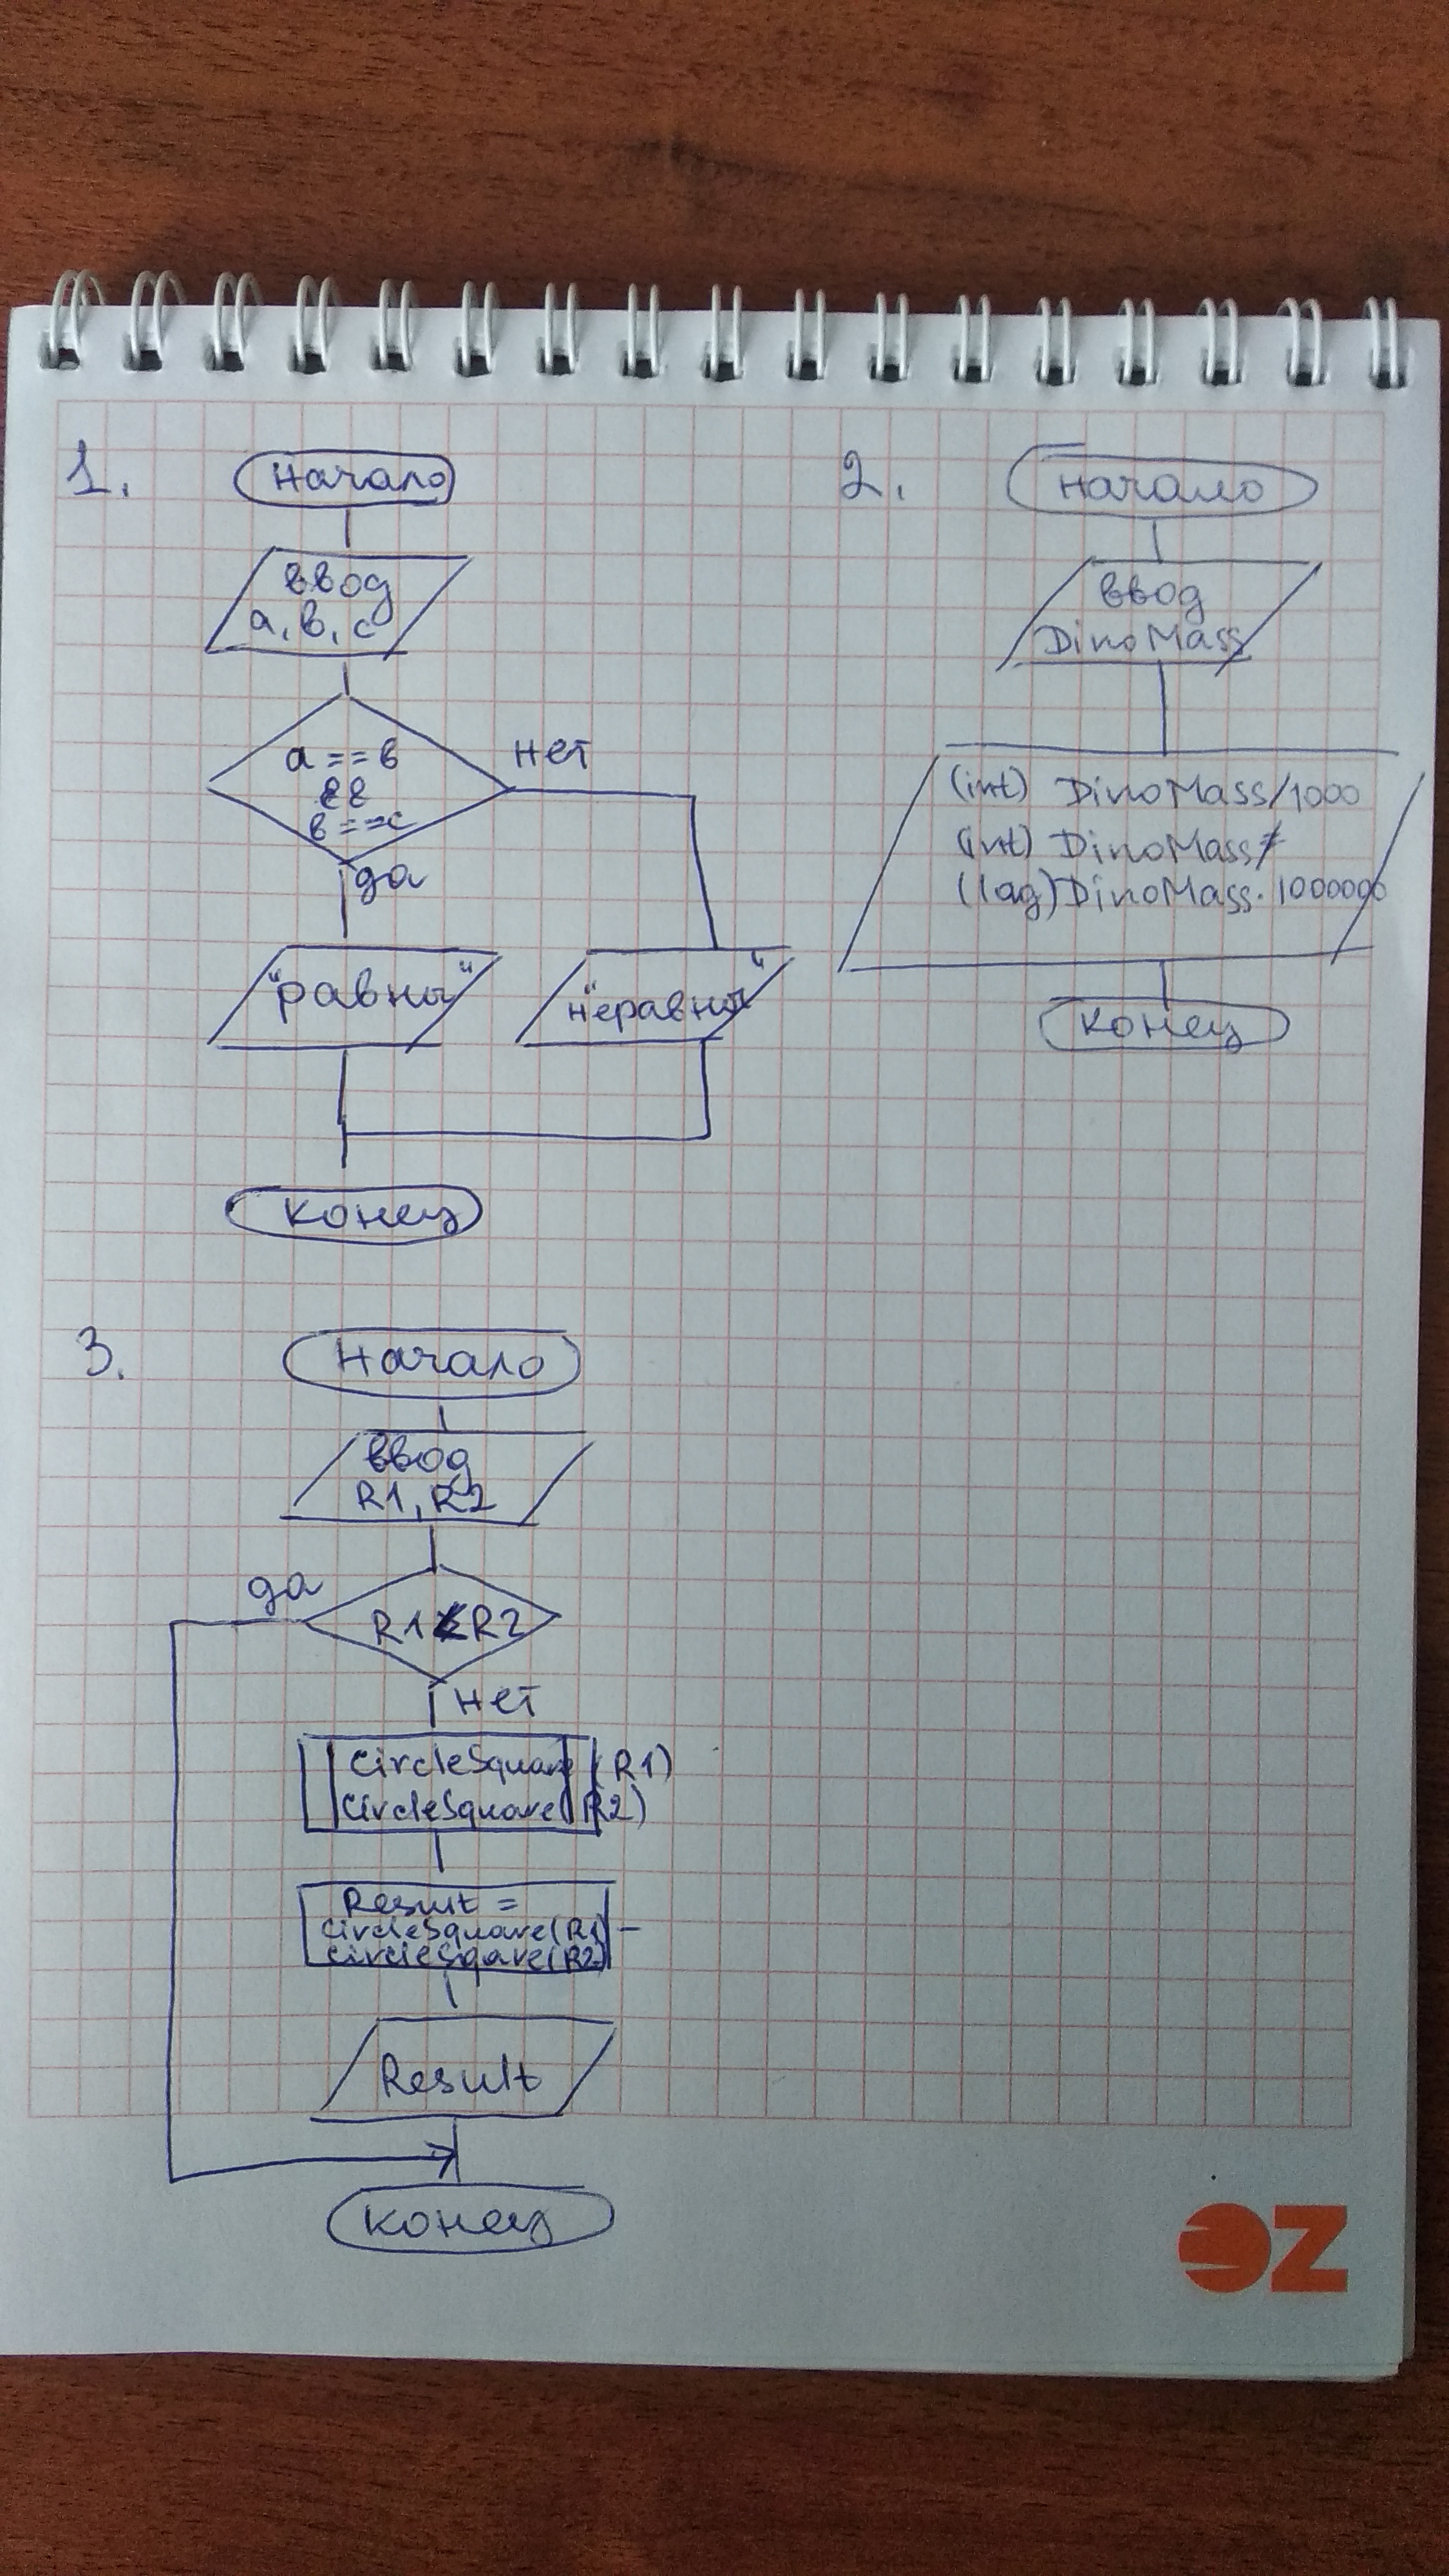 1.
Начало
ввод
a, b, c
a == b
&&
b == c
нет
да
"равны"
"неравны"
конец
2.
начало
ввод
DinoMass
(int) DinoMass/1000
(int) DinoMass
DinoMass · 1000000
конец
3.
Начало
ввод
R1, R2
да
R1 < R2
нет
CircleSquare (R1)
CircleSquare (R2)
Result =
CircleSquare(R1) –
CircleSqare(R2)
Result
конец
OZ